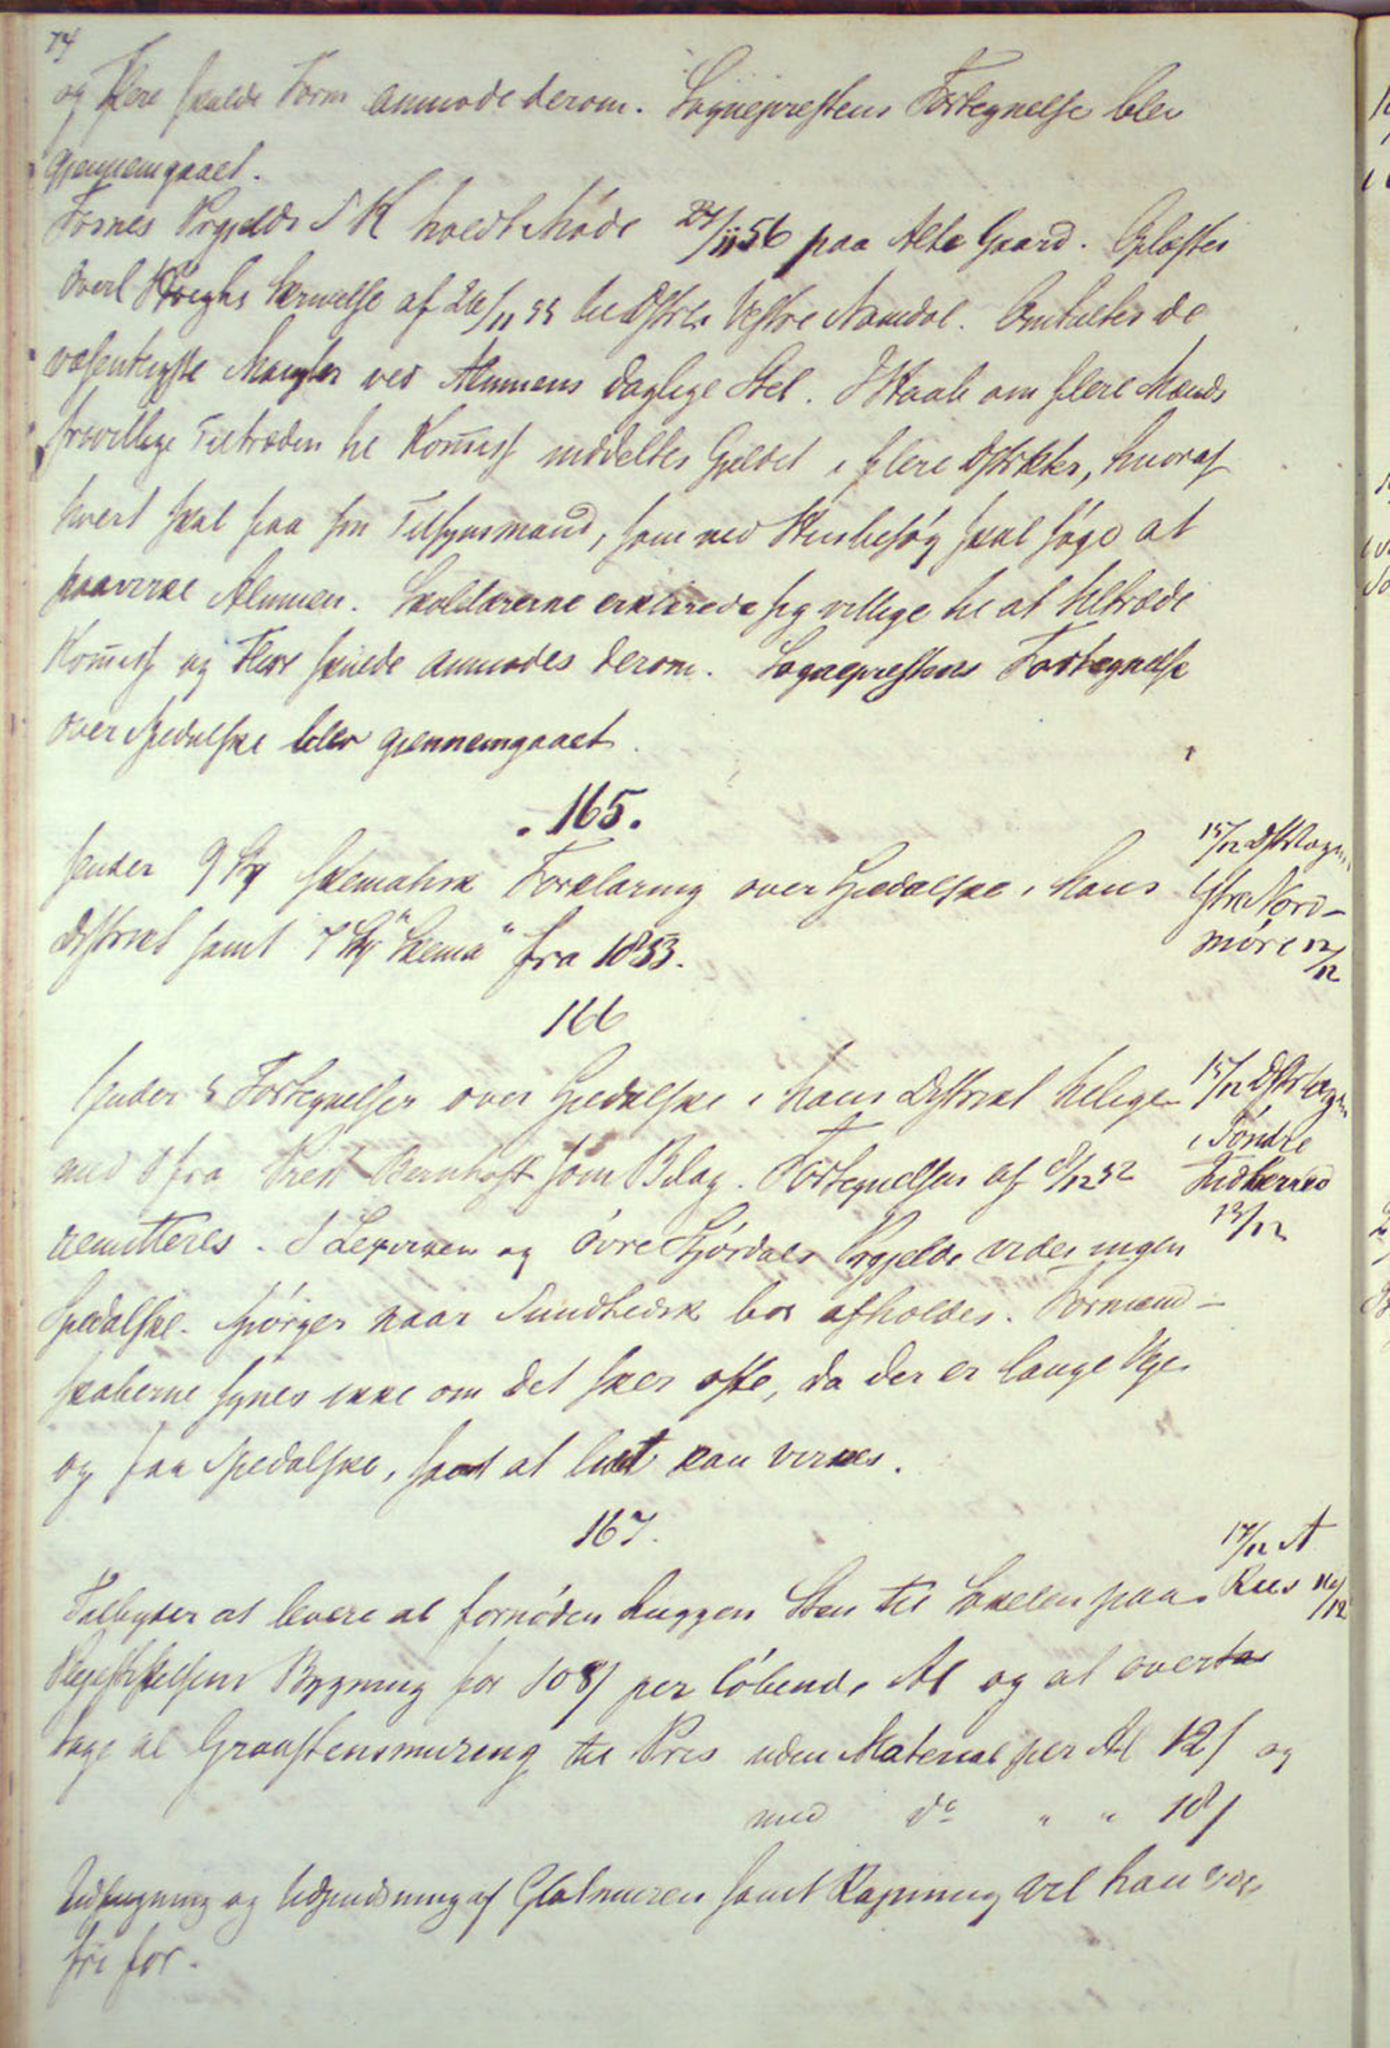 74
og Flere skulde Form anmode derom. Sognepræstens Fortegnelse blev
gjennemgaaet.
Fosnes Prgjelds S K holdt Møde 27/11 56 paa Alte Gaard. Oplæstes
Overl Høeghs Skrivelse af 26/11 55 til Dstrl. Vestre Namdal. Omtaltes de
væsentligste Mangler ved Almuens daglige Stel. I Haab om flere Mænds
frivillige Tiltræden til Komiss inddeltes Gjeldet i flere Distrikter, hvoraf
hvert skal faa sin Tilsynsmand, som ved Husbesøg skal søge at
paavirke Almuen. Skolelærerne erklærede sig villige til at tiltræde
Komiss og Flere skulde anmodes derom. Sognepræstens Fortegnelse
over Spedalske blev gjennemgaaet.
. 165.
Sender 9 Stk skematisk Forklaring over Spedalske i hans
Distrikt samt 7 Stk "Skema" fra 1853.
15/12 Dstrlægen
Ytre Nord-
møre 12/12
166
Sender 5 Fortegnelser over Spedalske i hans Distrikt tilige-
med 8 fra Præst Bernhoft som Bilag. Fortegnelsen af 8/12 52
remitteres. I Lexviken og Øvre Stjørdals Prgjelde vides ingen
Spedalske. Spørger naar Sundhedsk bør afholdes. Formænd-
skaberne synes ikke om det sker ofte, da der er lange Veje
og faa Spedalske, saa at lidet kan virkes.
15/12 Dstrlægen
i Søndre
Indherred
13/12
167.
Tilbyder at levere al fornøden huggen Sten til Sokkelen paa
Plejestiftelsens Bygning for 108 / per løbende Al og at overta
tage al Graastensmuring til Pris uden Material per Al 12 / og
med do " " 18 /
Udfugning og Udpudsning af Glatmuren samt Rapning vil han være
fri for.
17/12 A
Rees 16/12